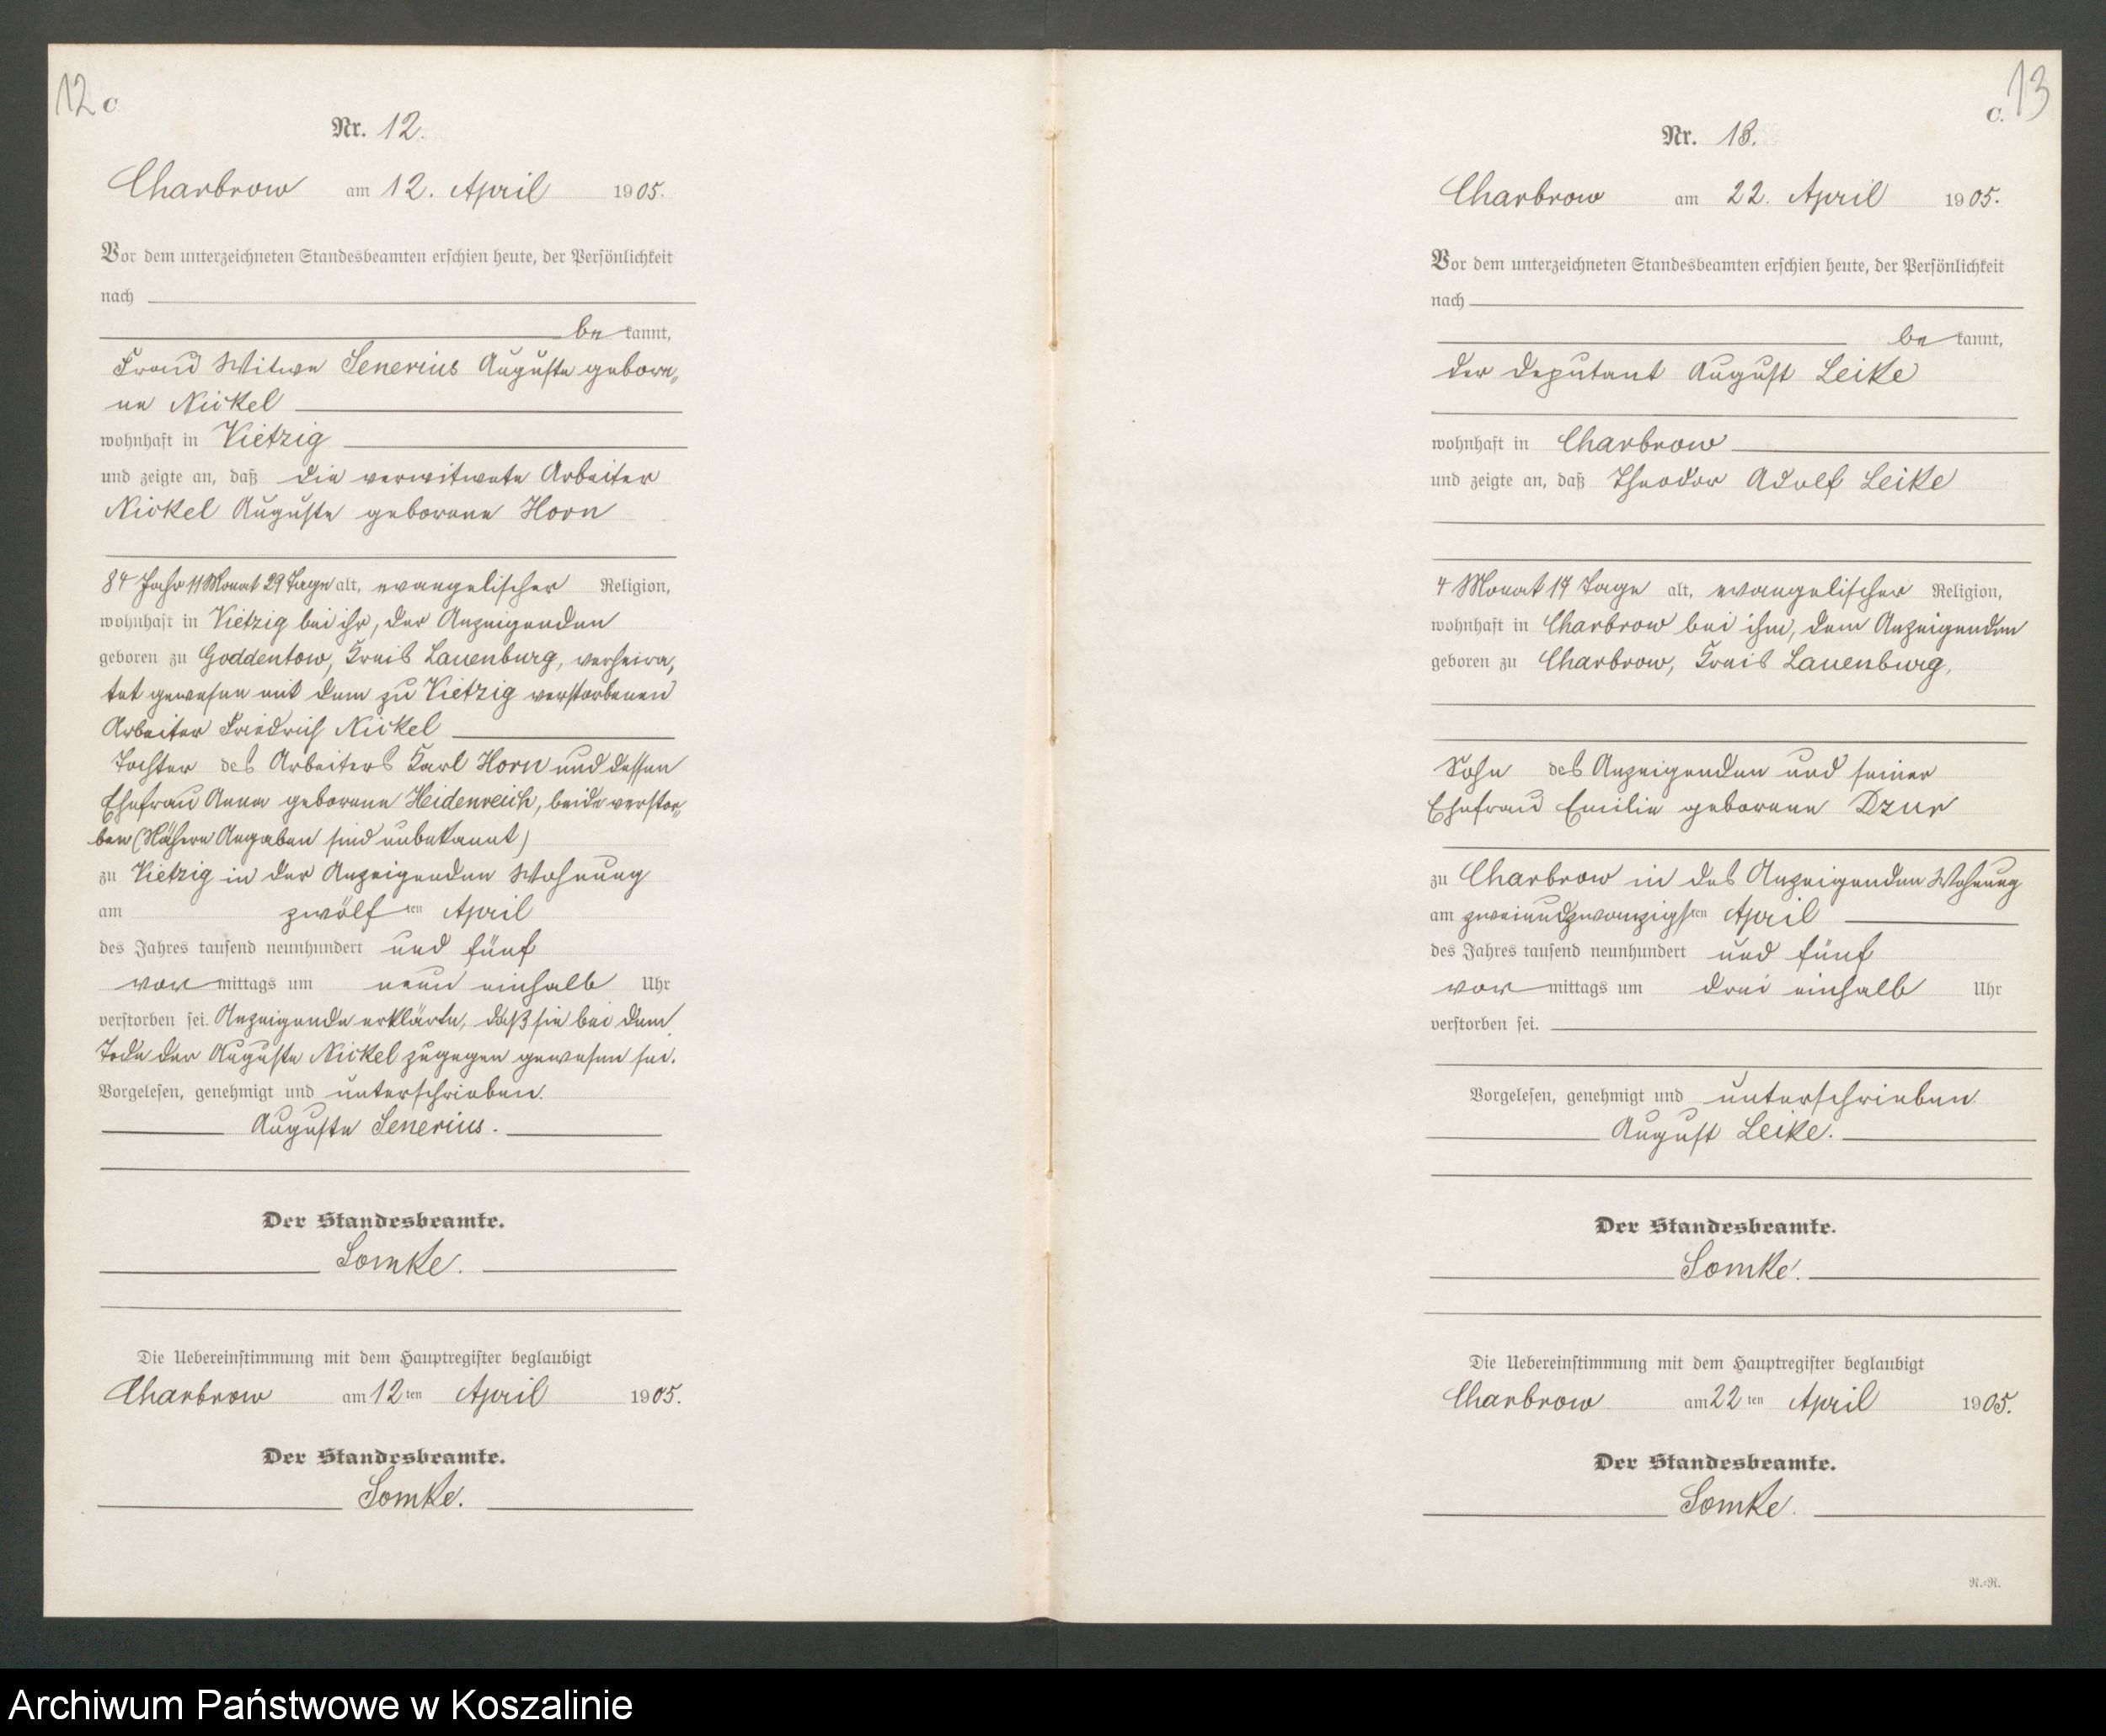 12 C
Nr. 12.
Charbrow am 12. April 1905.
Vor dem unterzeichneten Standesbeamten erschien heute, der Persönlichkeit
nach
be kannt,
Witwe Senerius Auguste gebore„
ne Nickel
wohnhaft in Vietzig
und zeigte an, daß die verwitwete Arbeiter
Nickel Auguste geborene Horn
84 Jahr 11 Monat 29 Tage alt, evangelischer Religion,
wohnhaft in Vietzig bei ihr, der Anzeigenden
geboren zu Goddentow, Kreis Lauenburg, verheira„
tet gewesen mit dem zu Vietzig verstorbenen
Arbeiter Friedrich Nickel
Tochter des Arbeiters Karl Horn und dessen
Ehefrau Anna geborene Heidenreich, beide verstor„
ben (Nähere Angaben sind unbekannt)
zu Vietzig in der Anzeigenden Wohnung
am zwölf ten April
des Jahres tausend neunhundert und fünf
vor mittags um neun einhalb Uhr
verstorben sei. Anzeigende erklärte, daß sie bei dem
Tode der Auguste Nickel zugegen gewesen sei.
Vorgelesen, genehmigt und unterschrieben.
Auguste Senerius.
Der Standesbeamte.
Lomke.
Die Uebereinstimmung mit dem Hauptregister beglaubigt
Charbrow am 12 ten April 1905.
Der Standesbeamte.
Lomke.
C. 13
Nr. 13.
Charbrow am 22. April 1905.
Vor dem unterzeichneten Standesbeamten erschien heute, der Persönlichkeit
nach
be kannt,
der Deputant August Leike
wohnhaft in Charbrow
und zeigte an, daß Theodor Adolf Leike
4 Monat 17 Tage alt, evangelischer Religion,
wohnhaft in Charbrow bei ihm, dem Anzeigenden
geboren zu Charbrow, Kreis Lauenburg,
Sohn des Anzeigenden und seiner
Ehefrau Emilie geborene Dzur
zu Charbrow in des Anzeigenden Wohnung
am zweiundzwanzigsten April
des Jahres tausend neunhundert und fünf
vor mittags um drei einhalb Uhr
verstorben sei.
Vorgelesen, genehmigt und unterschrieben.
August Leike.
Der Standesbeamte.
Lomke.
Die Uebereinstimmung mit dem Hauptregister beglaubigt
Charbrow am 22 ten April 1905.
Der Standesbeamte.
Lomke.
N.=R.
Archiwum Państwowe w Koszalinie